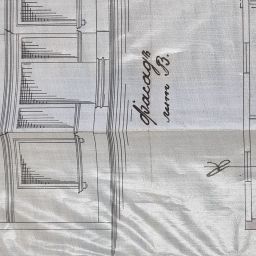 фасадъ
лит В.